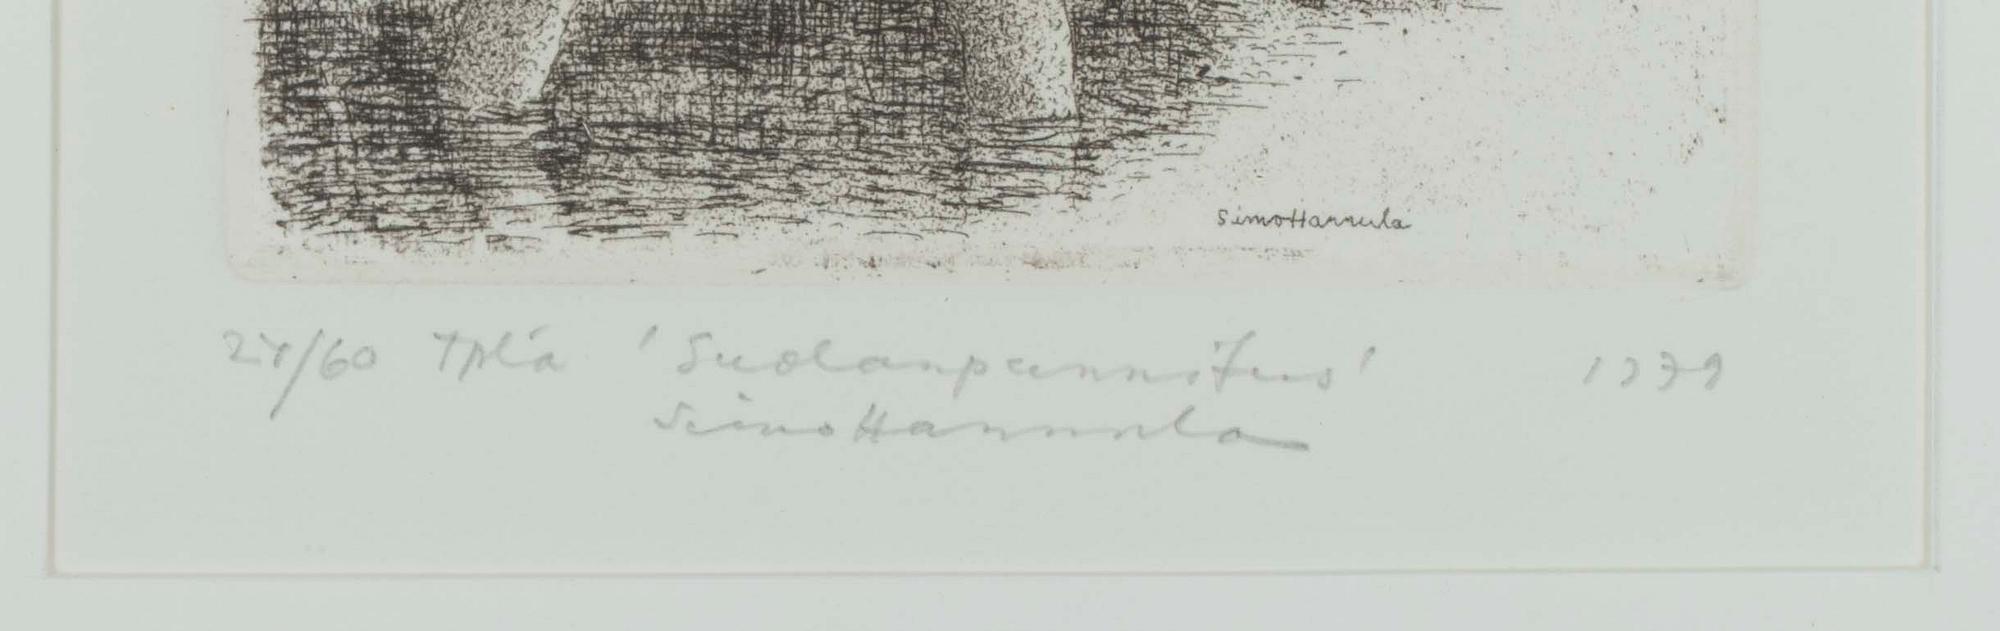 SimoHannula
/60 tpl'a 'Suolanpunnitus' 1979
SimoHannula